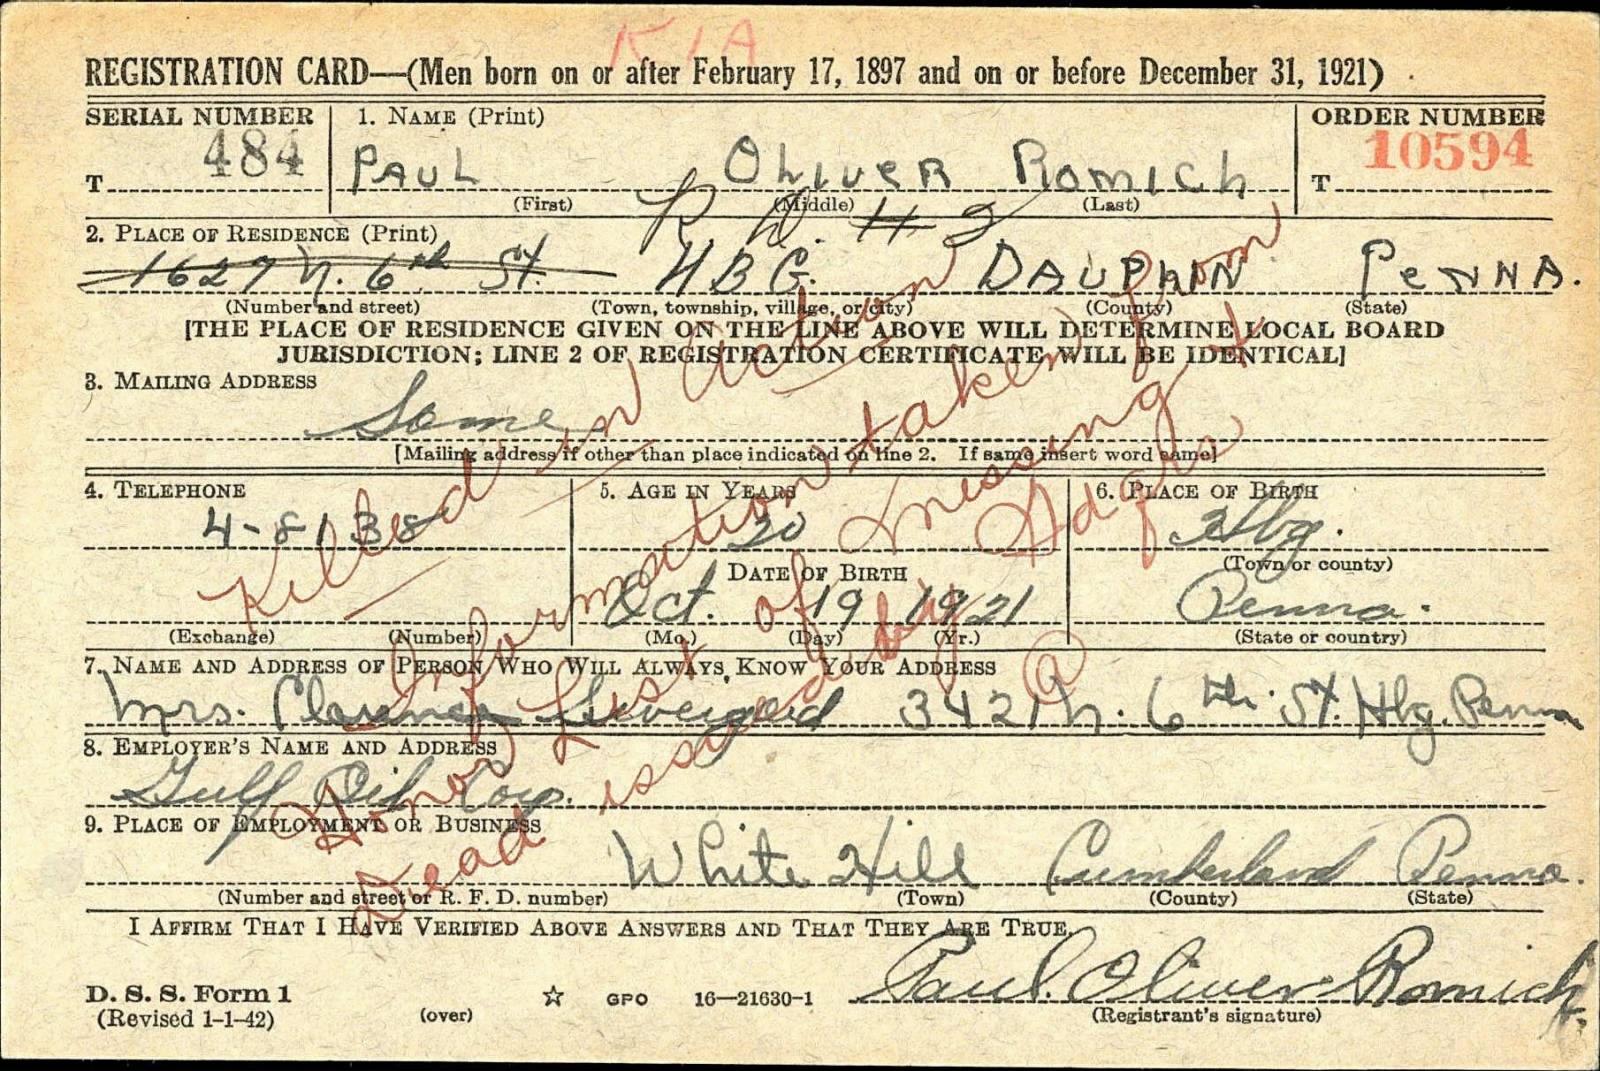 KIA
REGISTRATION CARD—(Men born on or after February 17, 1897 and on or before December 31, 1921)
SERIAL NUMBER
1. NAME (Print)
ORDER NUMBER
T 484
PAUL OLIVER ROMICH
T 10594
(First) (Middle) (Last)
R. D. # 2
2. PLACE OF RESIDENCE (Print)
1627 N. 6th St. HBG. DAUPHIN PENNA.
(Number and street) (Town, township, village, or city) (County) (State)
[THE PLACE OF RESIDENCE GIVEN ON THE LINE ABOVE WILL DETERMINE LOCAL BOARD
JURISDICTION; LINE 2 OF REGISTRATION CERTIFICATE WILL BE IDENTICAL]
3. MAILING ADDRESS
Same
[Mailing address if other than place indicated on line 2. If same insert word same]
4. TELEPHONE
4-8138
(Exchange) (Number)
5. AGE IN YEARS
20
DATE OF BIRTH
Oct. 19 1921
(Mo.) (Day) (Yr.)
6. PLACE OF BIRTH
Hbg.
(Town or county)
Penna.
(State or country)
7. NAME AND ADDRESS OF PERSON WHO WILL ALWAYS KNOW YOUR ADDRESS
Mrs. 3421 N. 6th St. Hbg. Penna
8. EMPLOYER'S NAME AND ADDRESS
Gulf Oil Corp.
9. PLACE OF EMPLOYMENT OR BUSINESS
White Hill Cumberland Penna.
(Number and street or R. F. D. number) (Town) (County) (State)
I AFFIRM THAT I HAVE VERIFIED ABOVE ANSWERS AND THAT THEY ARE TRUE.
Paul Oliver Romich
D. S. S. Form 1
(Revised 1-1-42)
(over)
☆ GPO 16—21630-1
(Registrant's signature)
Killed in Action
Information taken from
Honor List of Missing &
Dead issued by Hdqrs